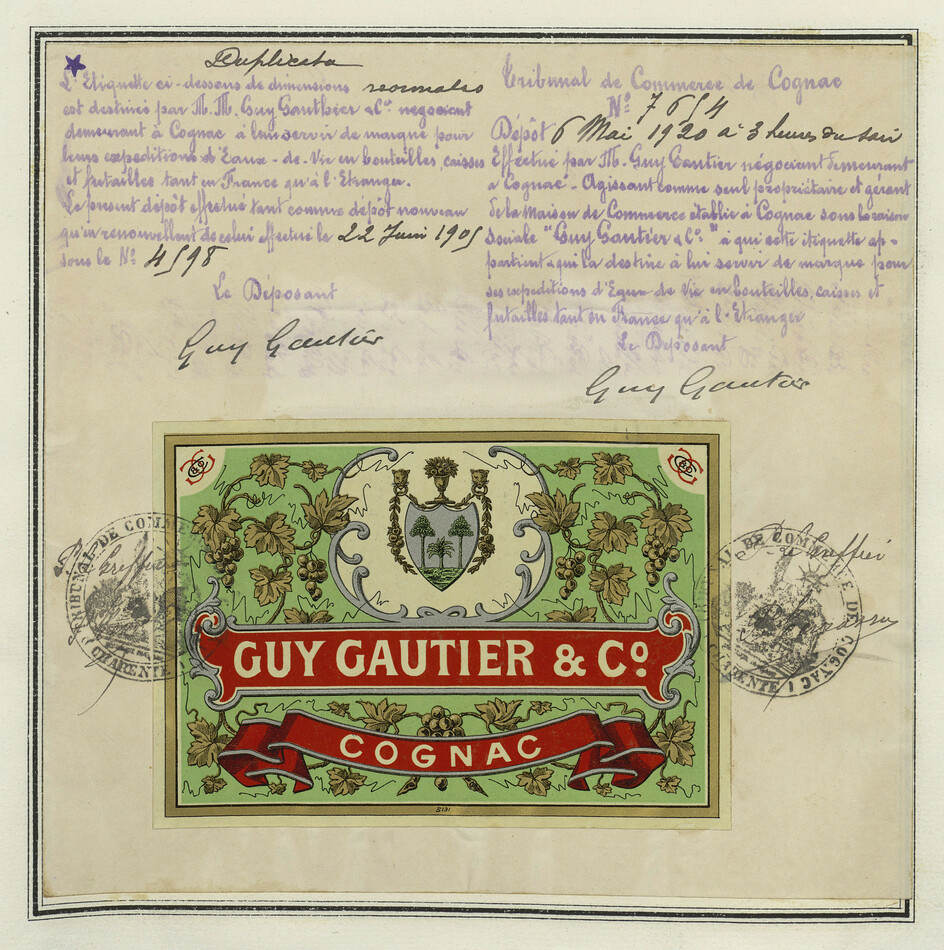 Duplicata
L'Etiquette ci-dessous de dimensions
est destinée par M.M. Guy Gauthier & Co. négociant
demeurant à Cognac à leur servir de marque pour
leurs expéditions d'Eaux-de-Vie en bouteilles, caisses
et futailles tant en France qu'à l'Etranger.
Le présent dépôt effectué tant comme dépôt nouveau
qu'en renouvellant de celui effectué le 22 Juin 1905
sous le No. 4598
Le Déposant
Guy Gautier
Tribunal de Commerce de Cognac
No. 7654
Dépôt 6 Mai 1920 à 3 heures du soir
Effectué par M. Guy Gautier négociant demeurant
à Cognac - Agissant comme seul propriétaire et gérant
de la Maison de Commerce établie à Cognac sous la raison
sociale "Guy Gautier & Co." à qui cette étiquette ap-
partient & qui la destine à lui servir de marque pour
ses expéditions d'Eaux de Vie en bouteilles, caisses et
futailles tant en France qu'à l'Etranger
Le Déposant
Guy Gautier
GUY GAUTIER & Co.
COGNAC
5131
TRIBUNAL DE COMME
CHARENTE
Greffier
AL DE COMM CE DE COGNAC
ENTE
Le Greffier